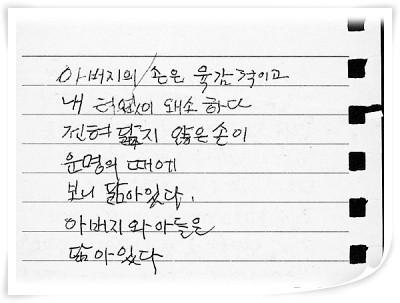 아버지의 손은 육감적이고
내 터없이 왜소하다
전혀 닮지 않은 손이
운명의 때에
보니 닮아있다.
아버지와 아들은
닮아있다